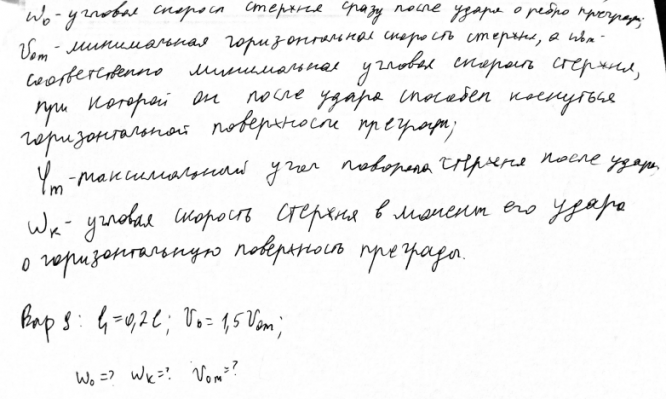 ω₀ - угловая скорость стержня сразу после удара о ребро преграды;
V₀ₘ - минимальная горизонтальная скорость стержня, а
соответственно минимальная угловая скорость стержня,
при которой он после удара способен коснуться
горизонтальной поверхности преграды;
φₘ - максимальный угол поворота стержня после удара,
ωₖ - угловая скорость стержня в момент его удара
о горизонтальную поверхность преграды.
Вар 9: l₁=0,2l; V₀=1,5V₀ₘ;
ω₀=? ωₖ=? V₀ₘ=?